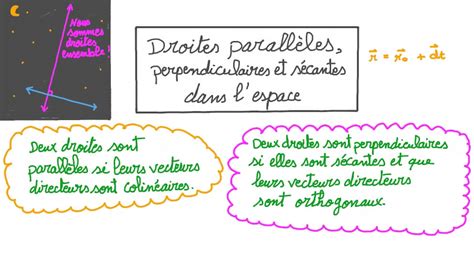 Nous
sommes
droites
ensemble!
Droites parallèles,
perpendiculaires et sécantes
dans l'espace
r⃗ = r⃗₀ + d⃗t
Deux droites sont
parallèles si leurs vecteurs
directeurs sont colinéaires.
Deux droites sont perpendiculaires
si elles sont sécantes et que
leurs vecteurs directeurs
sont orthogonaux.